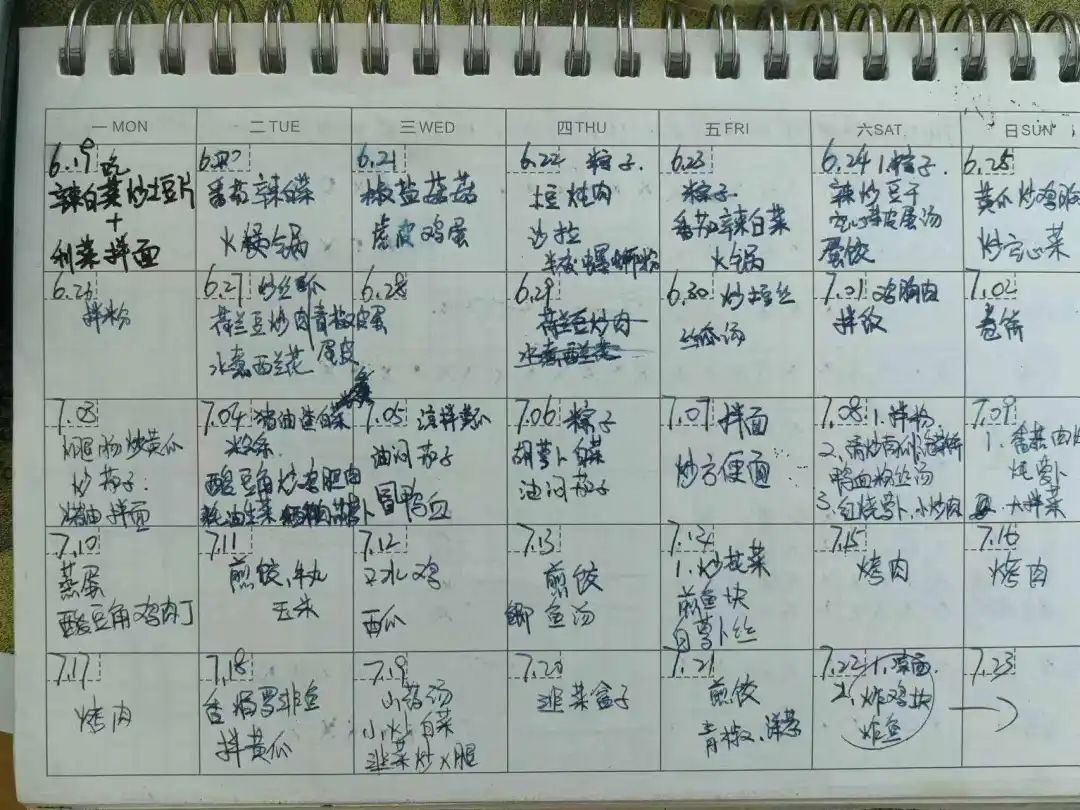 一 MON
二 TUE
三 WED
四 THU
五 FRI
六 SAT.
日 SUN
6.19 吃
辣白菜炒土豆片
+
利菜拌面
番茄辣白菜
火锅
6.21
椒盐菇菇
虎皮鸡蛋
6.22 粽子.
土豆炖肉
沙拉
螺蛳粉
6.23
粽子.
番茄辣白菜
火锅
6.24 1.粽子.
辣炒豆干
皮蛋汤
蛋饺
6.25
黄瓜炒鸡胸
炒空心菜
6.26
拌粉
6.27 炒丝瓜
荷兰豆炒肉
水煮西兰花
6.28
青椒皮蛋
蛋皮
6.29
荷兰豆炒肉
水煮西兰花
6.30 炒土豆丝
丝瓜汤
7.01 鸡胸肉
拌饭
7.02
卷饼
7.03
炒黄瓜
炒茄子.
猪油拌面
7.04 猪油渣白菜
酸豆角炒鸡腿肉
耗油生菜
7.05 凉拌黄瓜
油闷茄子
冒鸭血
7.06 粽子
胡萝卜白菜
油闷茄子
7.07 拌面
炒方便面
7.08 1.拌粉
2、清炒南瓜
鸭血粉丝汤
3.红烧萝卜、小炒肉
7.09
1.
炖萝卜
大拌菜
7.10
蒸蛋
酸豆角鸡肉丁
7.11
煎饺、牛丸
玉米
7.12
口水鸡
西瓜
7.13
煎饺
鲫鱼汤
7.14
1.炒花菜
煎鱼块
白萝卜丝
7.15
烤肉
7.16
烤肉
7.17
烤肉
7.18
香煸罗非鱼
拌黄瓜
7.19
山药汤
小炒白菜
韭菜炒火腿
7.20
韭菜盒子
7.21
煎饺
青椒、洋葱
7.22 1.凉面
2.炸鸡块
炸鱼
7.23